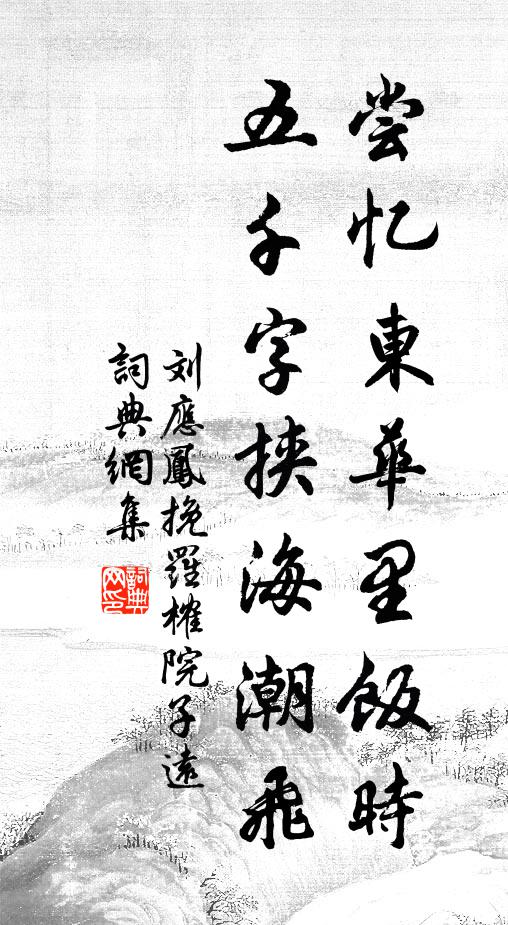 尝忆東華里飯時
五千字挟海潮飛
刘應鳳挽羅榷院子遠
詞典網集
詞典网印